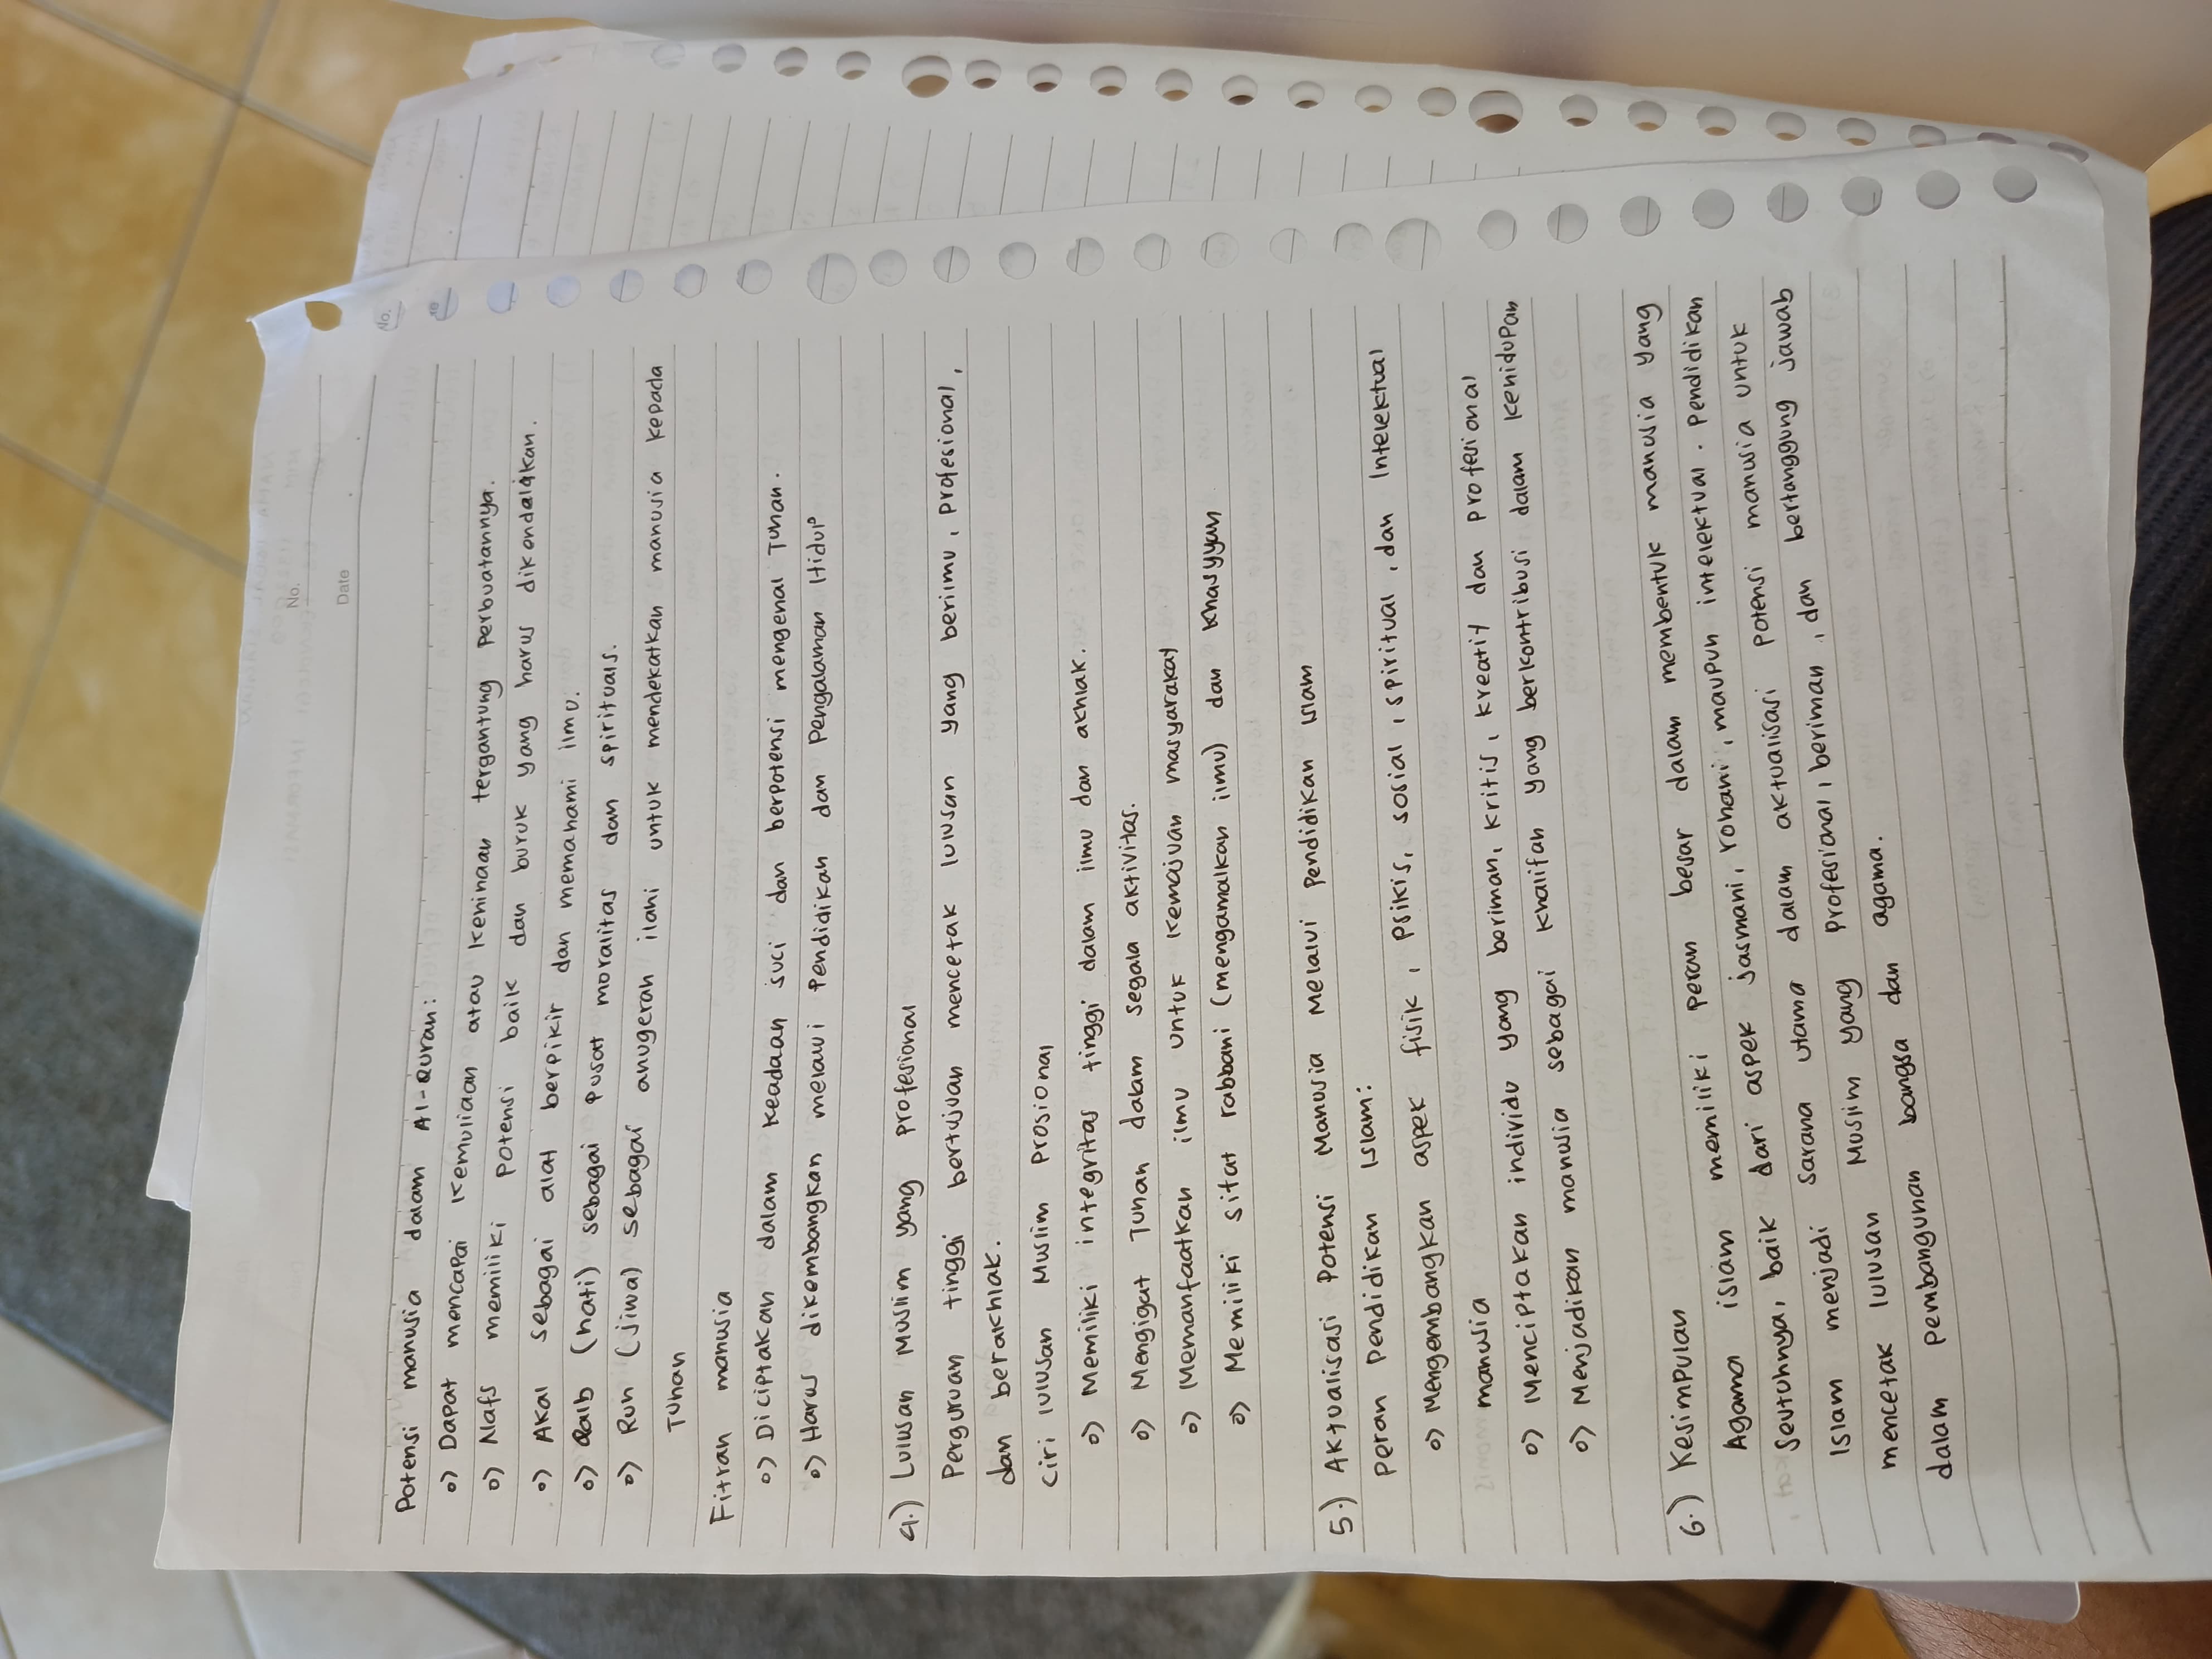 No.
Date
Potensi manusia dalam Al-Quran:
o) Dapat mencapai kemuliaan atau kehinaan tergantung Perbuatannya.
o) Nafs memiliki potensi baik dan buruk yang harus dikendalikan.
o) Akal sebagai alat berpikir dan memahami ilmu.
o) Qalb (hati) sebagai pusat moralitas dan spirituals.
o) Ruh (jiwa) sebagai anugerah ilahi untuk mendekatkan manusia kepada
Tuhan
Fitrah manusia
o) Diciptakan dalam keadaan suci dan berpotensi mengenal Tuhan.
o) Harus dikembangkan melalui Pendidikan dan Pengalaman Hidup
4.) Lulusan Muslim yang profesional
Perguruan tinggi bertujuan mencetak lulusan yang berilmu, Profesional,
dan berakhlak.
Ciri lulusan Muslim Prosional
o) Memiliki integritas tinggi dalam ilmu dan akhlak.
o) Mengigat Tuhan dalam segala aktivitas.
o) Memanfaatkan ilmu untuk kemajuan masyarakat
o) Memiliki sifat rabbani (mengamalkan ilmu) dan khasyyan
5.) Aktualisasi Potensi Manusia Melalui Pendidikan Islam
Peran Pendidikan Islam:
o) Mengembangkan aspek fisik, psikis, sosial, spiritual, dan Intelektual
manusia
o) Menciptakan individu yang beriman, kritis, kreatif dan profesional
o) Menjadikan manusia sebagai khalifah yang berkontribusi dalam kehidupan
6.) Kesimpulan
Agama islam memiliki peran besar dalam membentuk manusia yang
Seutuhnya, baik dari aspek jasmani, rohani, maupun intelektual. Pendidikan
Islam menjadi sarana utama dalam aktualisasi potensi manusia untuk
mencetak lulusan Muslim yang profesional, beriman, dan bertanggung jawab
dalam pembangunan bangsa dan agama.